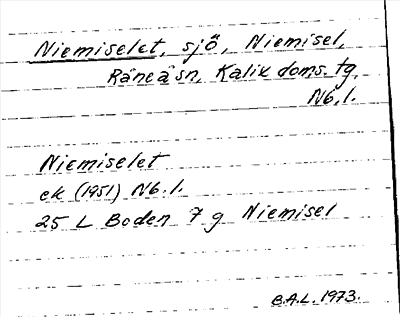 Niemiselet, sjö, Niemisel,
Råneå sn, Kalix doms. tg,
Nb. l.
Niemiselet
ek (1951) Nb. l.
25 L Boden 7 g Niemisel
B.A.L. 1973.